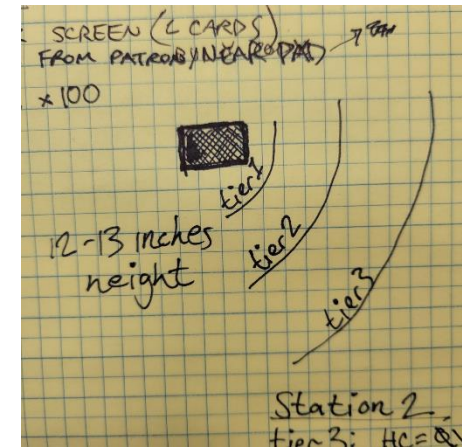 SCREEN (2 CARDS)
FROM PATRON BY NEAR
x100
tier1
tier2
tier3
12-13 inches
height
Station 2
tier 3: HC=